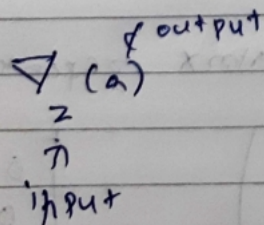 output
▽ (a)
z
n
input